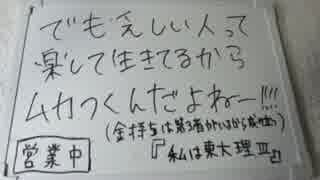 でも忙しい人って
楽して生きてるから
ムカつくんだよねー!!!!
(金持ちは第3者がいるから成り立つ)
営業中
『私は東大理Ⅲ』